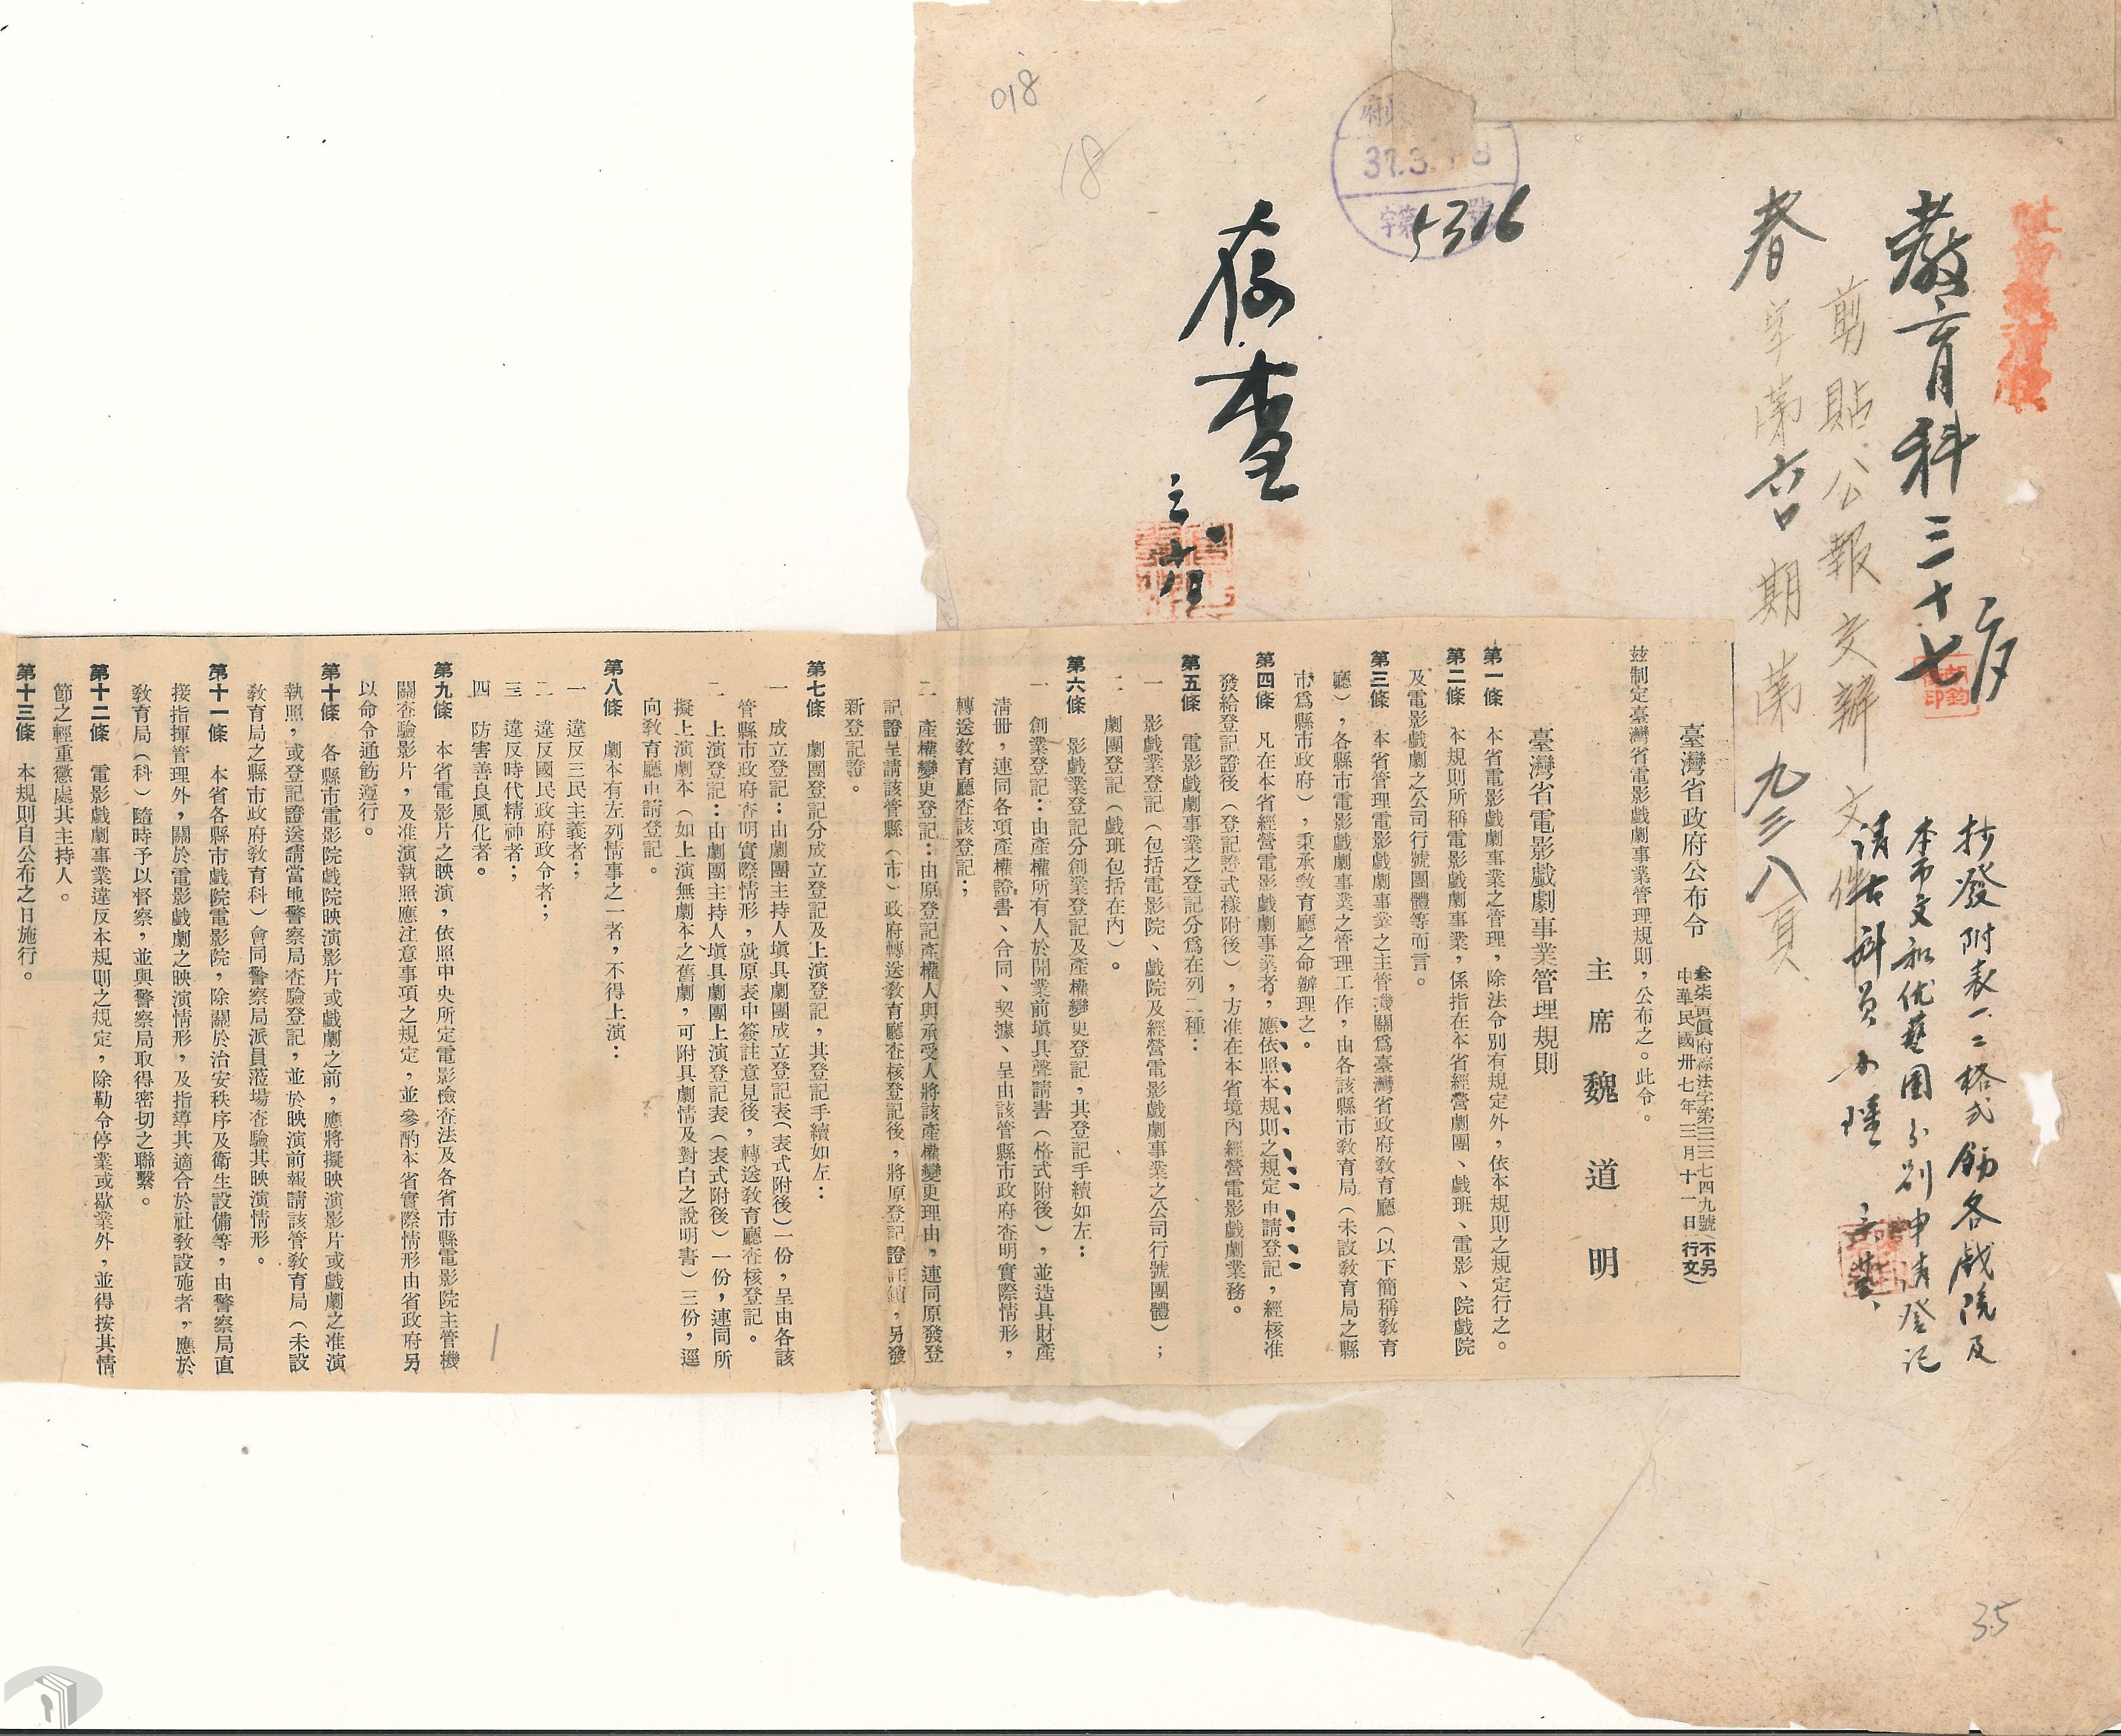 教育科
三十七
剪貼公報交辦文件
春字第六〇期第九三八頁
抄發附表一、二格式飭各戲院及
本市文和优藝團分別申請登記
請古科員办理
37.3.18
5316
存查
018
18
臺灣省政府公布令
叁柒寅府綜法字第三三七四九號(不另行文)
中華民國卅七年三月十一日
玆制定臺灣省電影戲劇事業管理規則,公布之。此令。
主席 魏道明
臺灣省電影戲劇事業管理規則
第一條 本省電影戲劇事業之管理,除法令別有規定外,依本規則之規定行之。
第二條 本規則所稱電影戲劇事業,係指在本省經營劇團、戲班、電影、院戲院
及電影戲劇之公司行號團體等而言。
第三條 本省管理電影戲劇事業之主管機關爲臺灣省政府敎育廳(以下簡稱敎育
廳),各縣市電影戲劇事業之管理工作,由各該縣市敎育局(未設敎育局之縣
市爲縣市政府),秉承敎育廳之命辦理之。
第四條 凡在本省經營電影戲劇事業者,應依照本規則之規定申請登記,經核准
發給登記證後(登記證式樣附後),方准在本省境內經營電影戲劇業務。
第五條 電影戲劇事業之登記分爲在列二種:
一 影戲業登記(包括電影院、戲院及經營電影戲劇事業之公司行號團體);
二 劇團登記(戲班包括在內)。
第六條 影戲業登記分創業登記及產權變更登記,其登記手續如左:
一 創業登記:由產權所有人於開業前塡具聲請書(格式附後),並造具財產
淸冊,連同各項產權證書、合同、契據、呈由該管縣市政府查明實際情形,
轉送敎育廳查該登記;
二 產權變更登記:由原登記產權人與承受人將該產權變更理由,連同原發登
記證呈請該管縣(市)政府轉送敎育廳查核登記後,將原登記證註銷,另發
新登記證。
第七條 劇團登記分成立登記及上演登記,其登記手續如左:
一 成立登記:由劇團主持人塡具劇團成立登記表(表式附後)一份,呈由各該
管縣市政府查明實際情形,就原表中簽註意見後,轉送敎育廳查核登記。
二 上演登記:由劇團主持人塡具劇團上演登記表(表式附後)一份,連同所
擬上演劇本(如上演無劇本之舊劇,可附具劇情及對白之說明書)三份,逕
向敎育廳申請登記。
第八條 劇本有左列情事之一者,不得上演:
一 違反三民主義者;
二 違反國民政府政令者;
三 違反時代精神者;
四 防害善良風化者。
第九條 本省電影片之映演,依照中央所定電影檢查法及各省市縣電影院主管機
關查驗影片,及准演執照應注意事項之規定,並參酌本省實際情形由省政府另
以命令通飭遵行。
第十條 各縣市電影院戲院映演影片或戲劇之前,應將擬映演影片或戲劇之准演
執照,或登記證送請當地警察局查驗登記,並於映演前報請該管敎育局(未設
敎育局之縣市政府敎育科)會同警察局派員蒞場查驗其映演情形。
第十一條 本省各縣市戲院電影院,除關於治安秩序及衛生設備等,由警察局直
接指揮管理外,關於電影戲劇之映演情形,及指導其適合於社敎設施者,應於
敎育局(科)隨時予以督察,並與警察局取得密切之聯繫。
第十二條 電影戲劇事業違反本規則之規定,除勒令停業或歇業外,並得按其情
節之輕重懲處其主持人。
第十三條 本規則自公布之日施行。
35